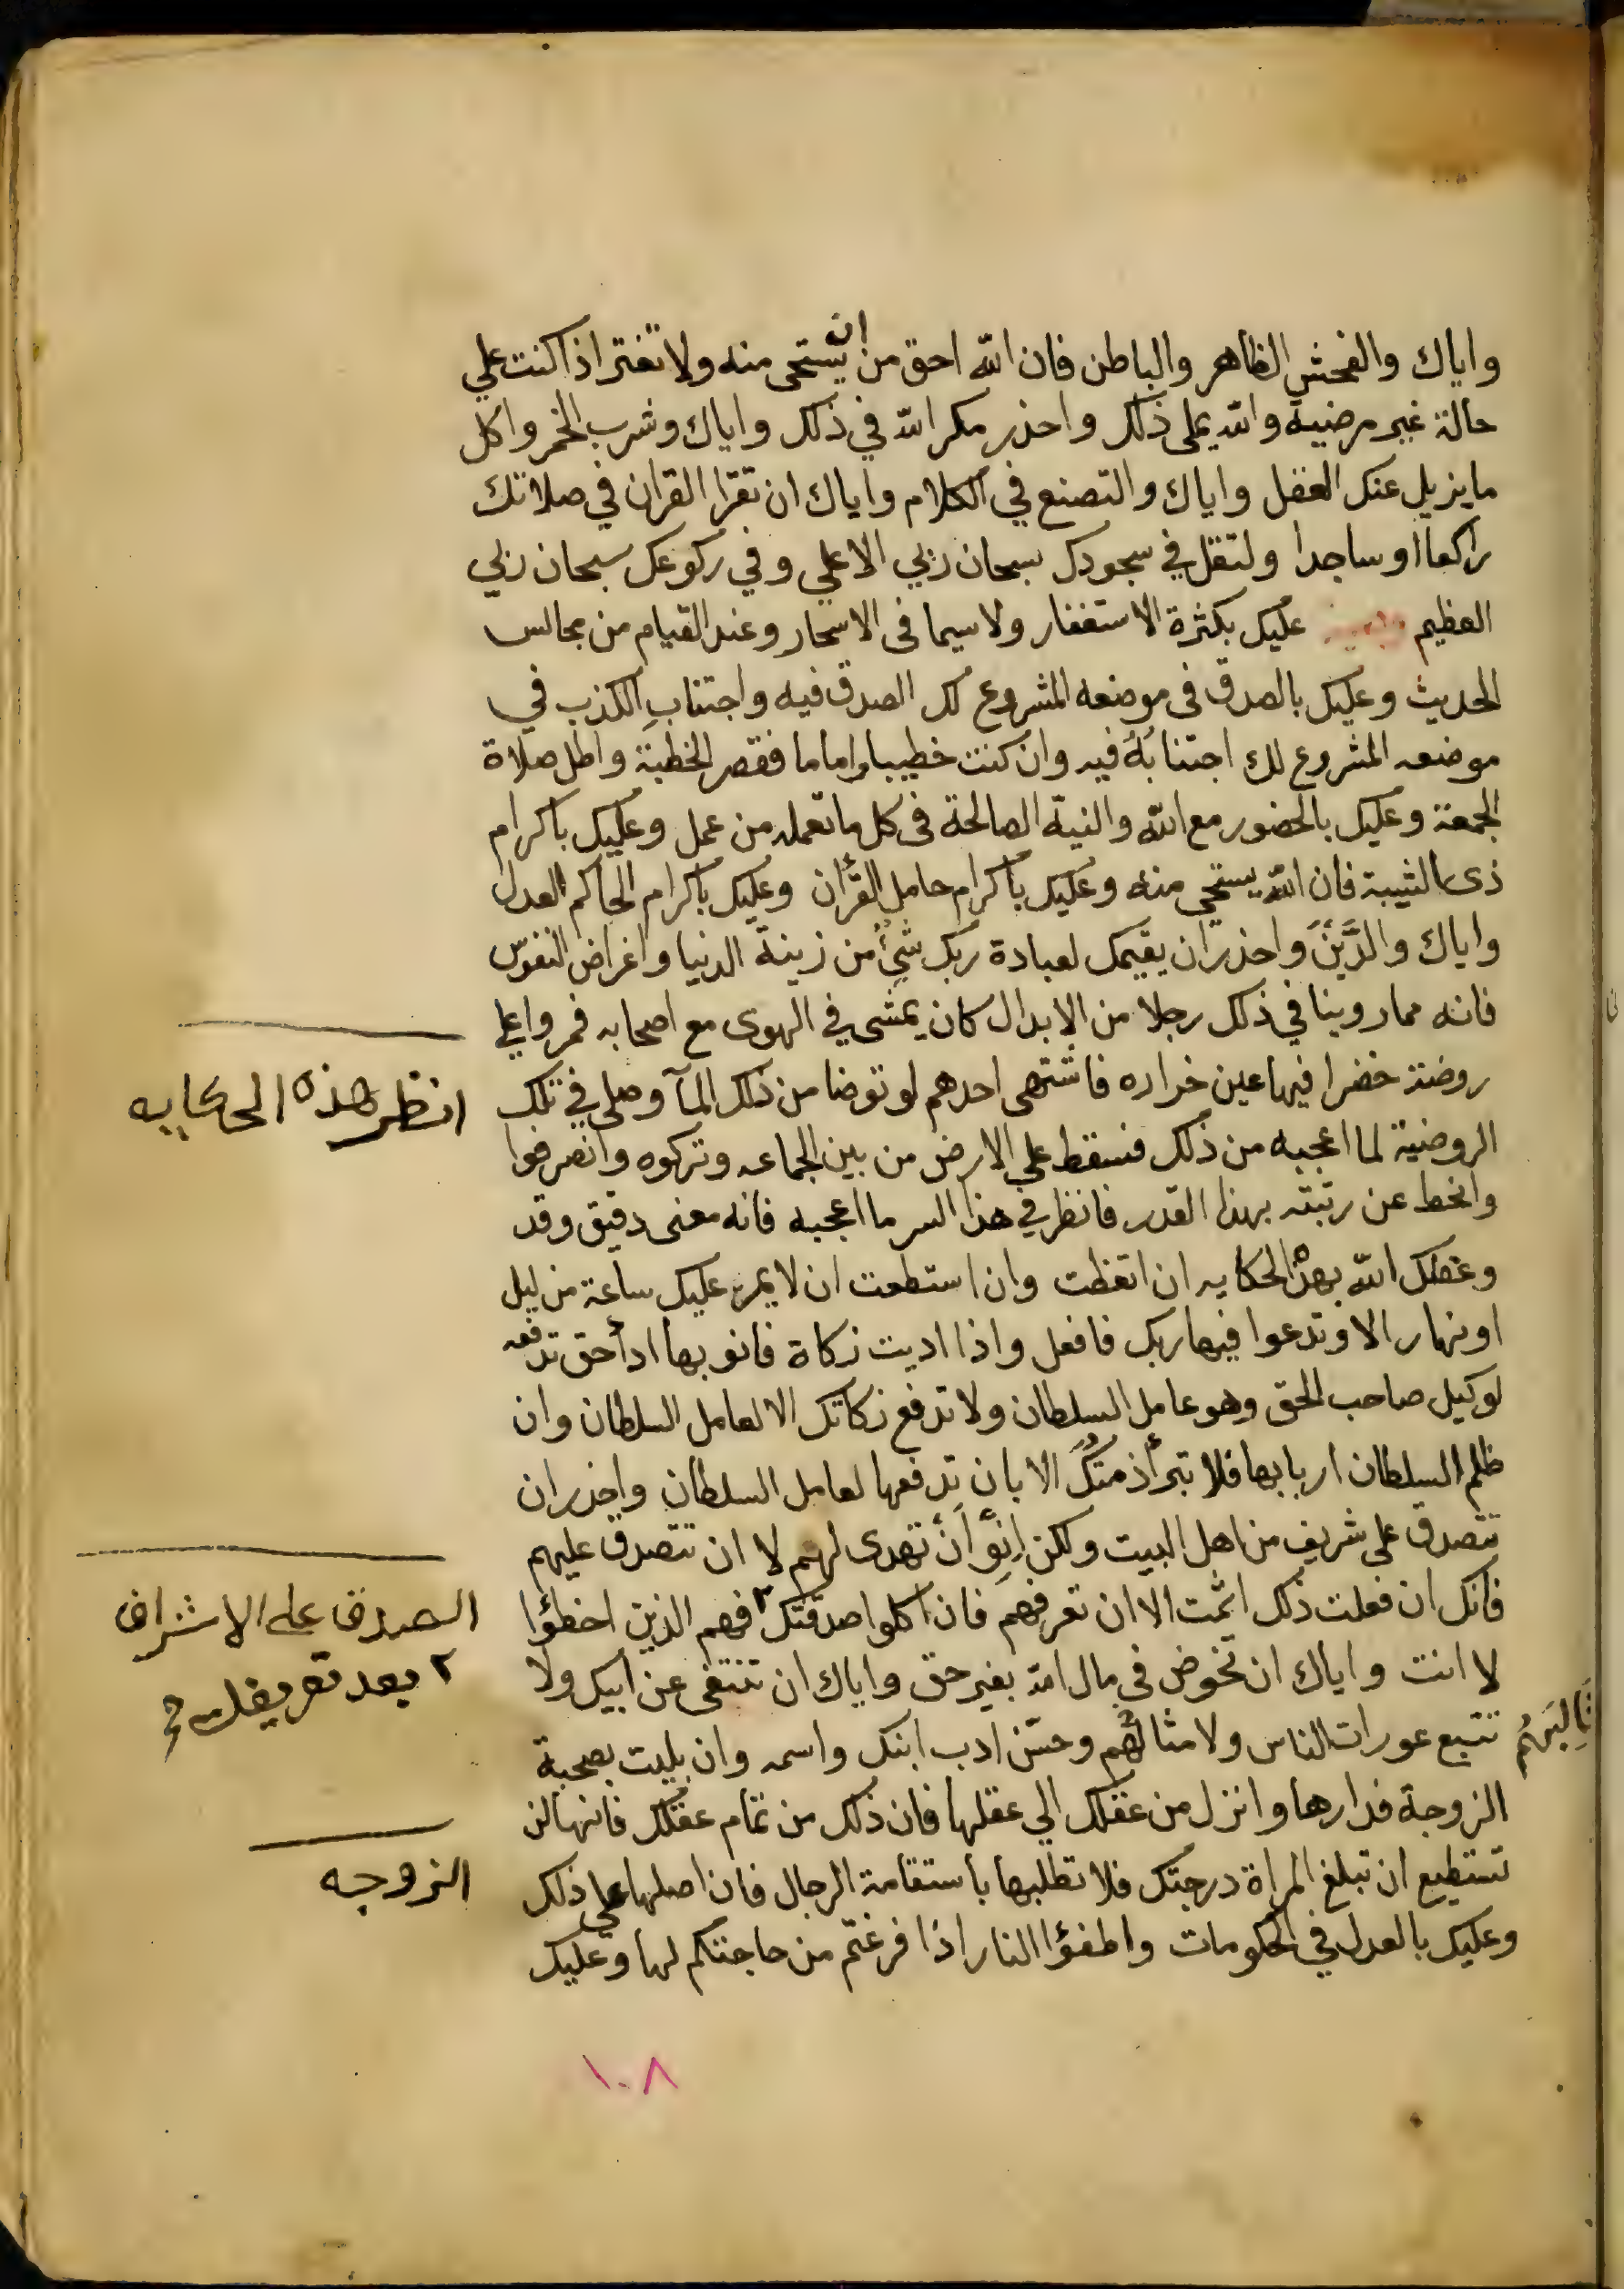 واياك والفحش الظاهر والباطن فان الله احق من ان يستحى منه ولا تغتر اذا كنت علي
حالة غير مرضية والله يملى ذلك واحذر مكر الله في ذلك واياك وشرب الخمر واكل
ما يزيل عنك العقل واياك والتصنع في الكلام واياك ان تقرا القران في صلاتك
راكعا او ساجدا ولتقل في سجودك سبحان ربي الاعلي وفي ركوعك سبحان ربي
العظيم عليك بكثرة الاستغفار ولاسيما فى الاسحار وعند القيام من مجالس
الحديث وعليك بالصدق فى موضعه المشروع لك الصدق فيه واجتناب الكذب في
موضعه المشروع لك اجتنابُهُ فيه وان كنت خطيبا واماما فقصر الخطبة واطل صلاة
الجمعة وعليك بالحضور مع الله والنية الصالحة فى كل ما تعمله من عمل وعليك باكرام
ذى الشيبة فان الله يستحي منه وعليك باكرام حامل القرأن وعليك باكرام الحاكم العدل
واياك والدَّيْنَ واحذر ان يقيمك لعبادة ربك شئٌ من زينة الدنيا واغراض النفوس
فانه مما روينا في ذلك رجلا من الابدال كان يمشى في الهوى مع اصحابه فمروا علي
روضة خضرا فيها عين خراره فاشتهى احدهم لو توضا من ذلك المآ وصلى في تلك
انظر هذه الحكايه
الروضية لما اعجبه من ذلك فسقط علي الارض من بين الجماعه وتركوه وانصرفوا
وانحط عن رتبته بهذا القدر فانظر في هذا السر ما اعجبه فانه معنى دقيق وقد
وعظك الله بهذه الحكايه ان اتعظت وان استطعت ان لا يمر عليك ساعة من ليل
او نهار الا وتدعوا فيها ربك فافعل واذا اديت زكاة فانو بها ادأ حق تدفعه
لوكيل صاحب الحق وهو عامل السلطان ولا تدفع زكاتك الا لعامل السلطان وان
ظلم السلطان اربابها فلا تبرأ ذمتكَ الا بان تدفعها لعامل السلطان واحذر ان
تتصدق على شريف من اهل البيت ولكن اِنْوِ أنْ تهدى لهم لا ان تتصدق عليهم
فانك ان فعلت ذلك اثمت الا ان تعرفهم فان اكلوا صدقتك ٢ فهم الذين اخطؤا
الصدق على الاشراف
٢ بعد تعريفك
لا انت واياك ان تخوض في مال الله بغير حق واياك ان تنتفى عن ابيك ولا
تتبع عورات الناس ولا مثالبهم وحسّن ادب ابنك واسمه وان بليت بصحبة
ثَالِبَهُمْ
الزوجة فدارها وانزل من عقلك الي عقلها فان ذلك من تمام عقلك فانها لن
تستطيع ان تبلغ المراة درجتك فلا تطلبها باستقامة الرجال فان اصلها على ذلك
الزوجه
وعليك بالعدل في الحكومات واطفؤا النار اذا فرغتم من حاجتكم لها وعليك
١٠٨